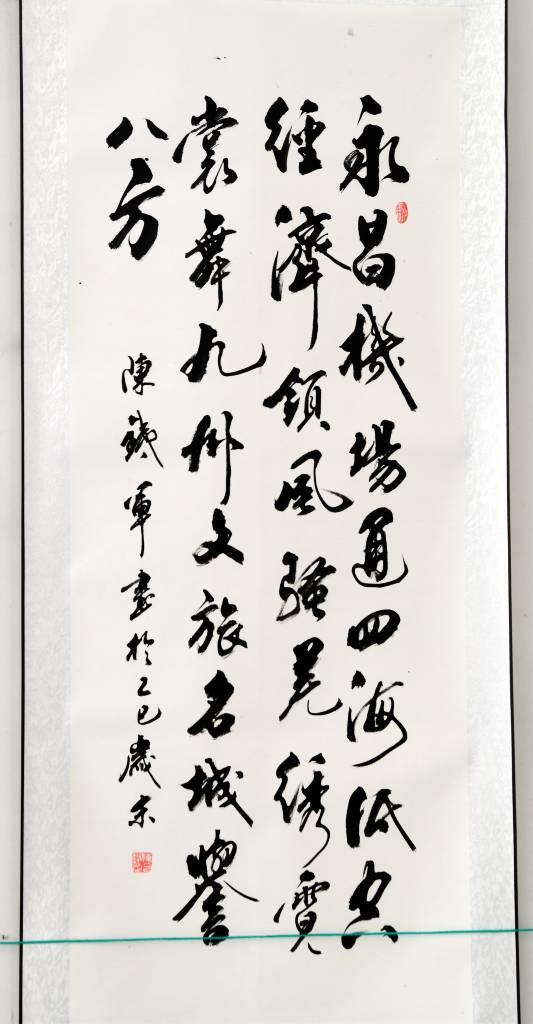 永昌機場通四海低空
經濟領風骚羌绣霓
裳舞九州文旅名城譽
八方
陳鐵軍書於乙巳歲末